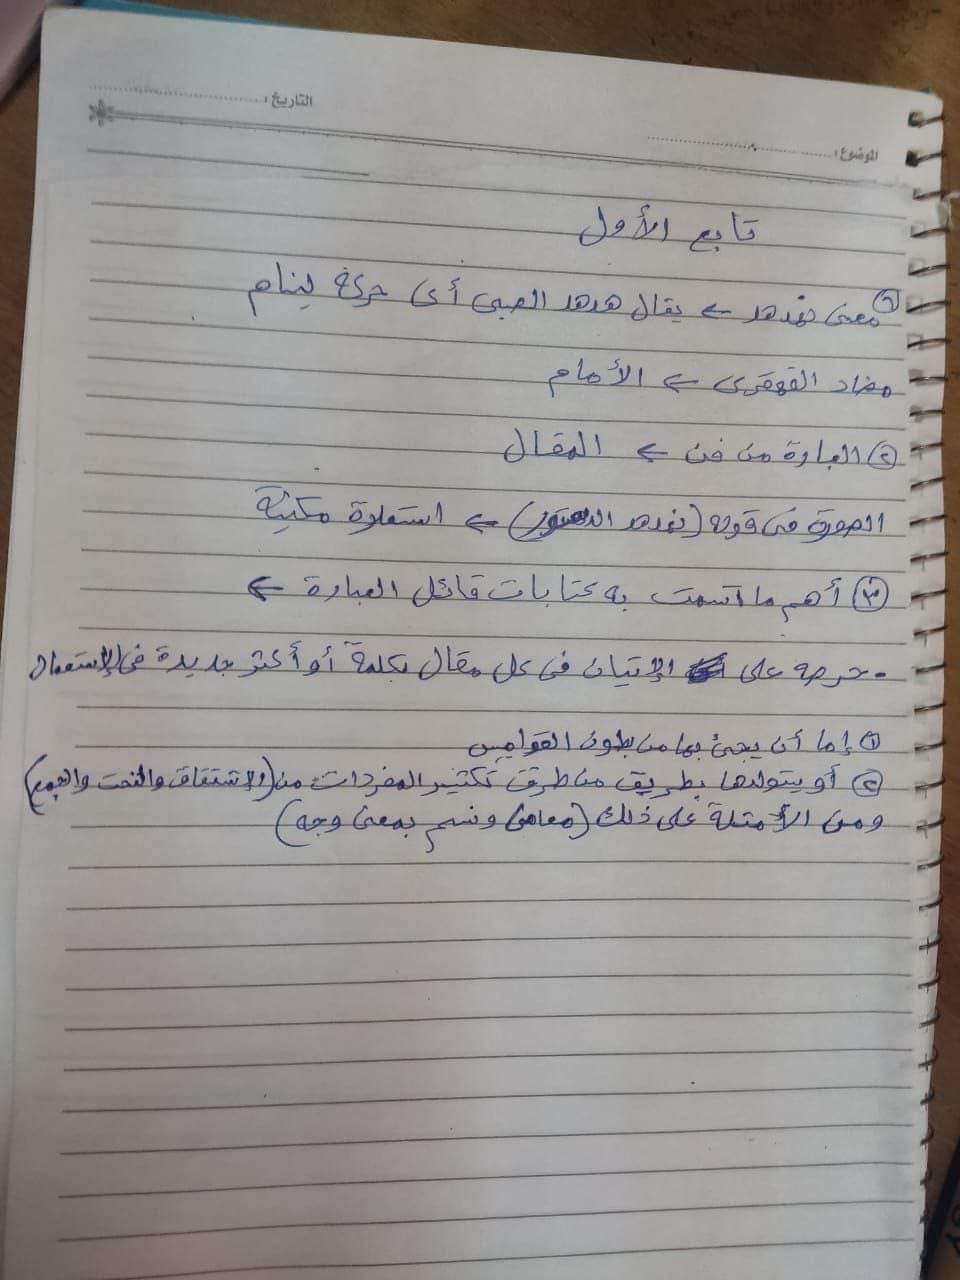 التاريخ:
الموضوع:
تابع الأول
① معنى نهدهد ← يقال هدهد الصبى أى حركه لينام
مضاد القهقرى ← الأمام
② العبارة من فن ← المقال
الصورة فى قوله (نهدهد) ← استعارة مكنية
③ أهم ما اتسمت به كتابات قائل العبارة ←
- حرصه على الإتيان فى كل مقال بكلمة أو أكثر جديدة فى الإستعمال
① إما أن يجئ بها من بطون القواميس
② أو يتولدها بطريق من طرق تكثير المفردات من (الاشتقاق والنحت والجمع)
ومن الأمثلة على ذلك ( وسم بمعنى وجه)